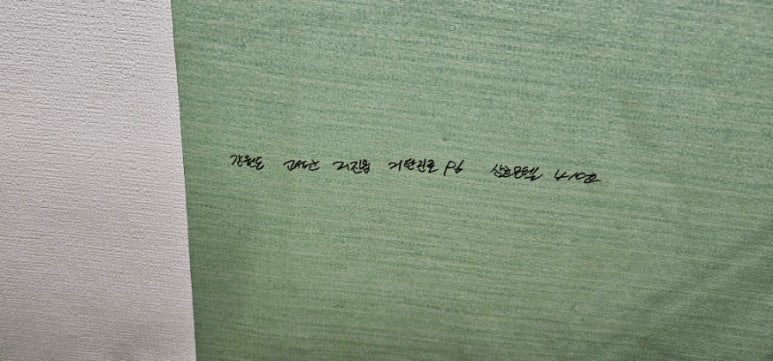 강원도 고성군 거진읍 거탄진로 96 삼호모텔 410호